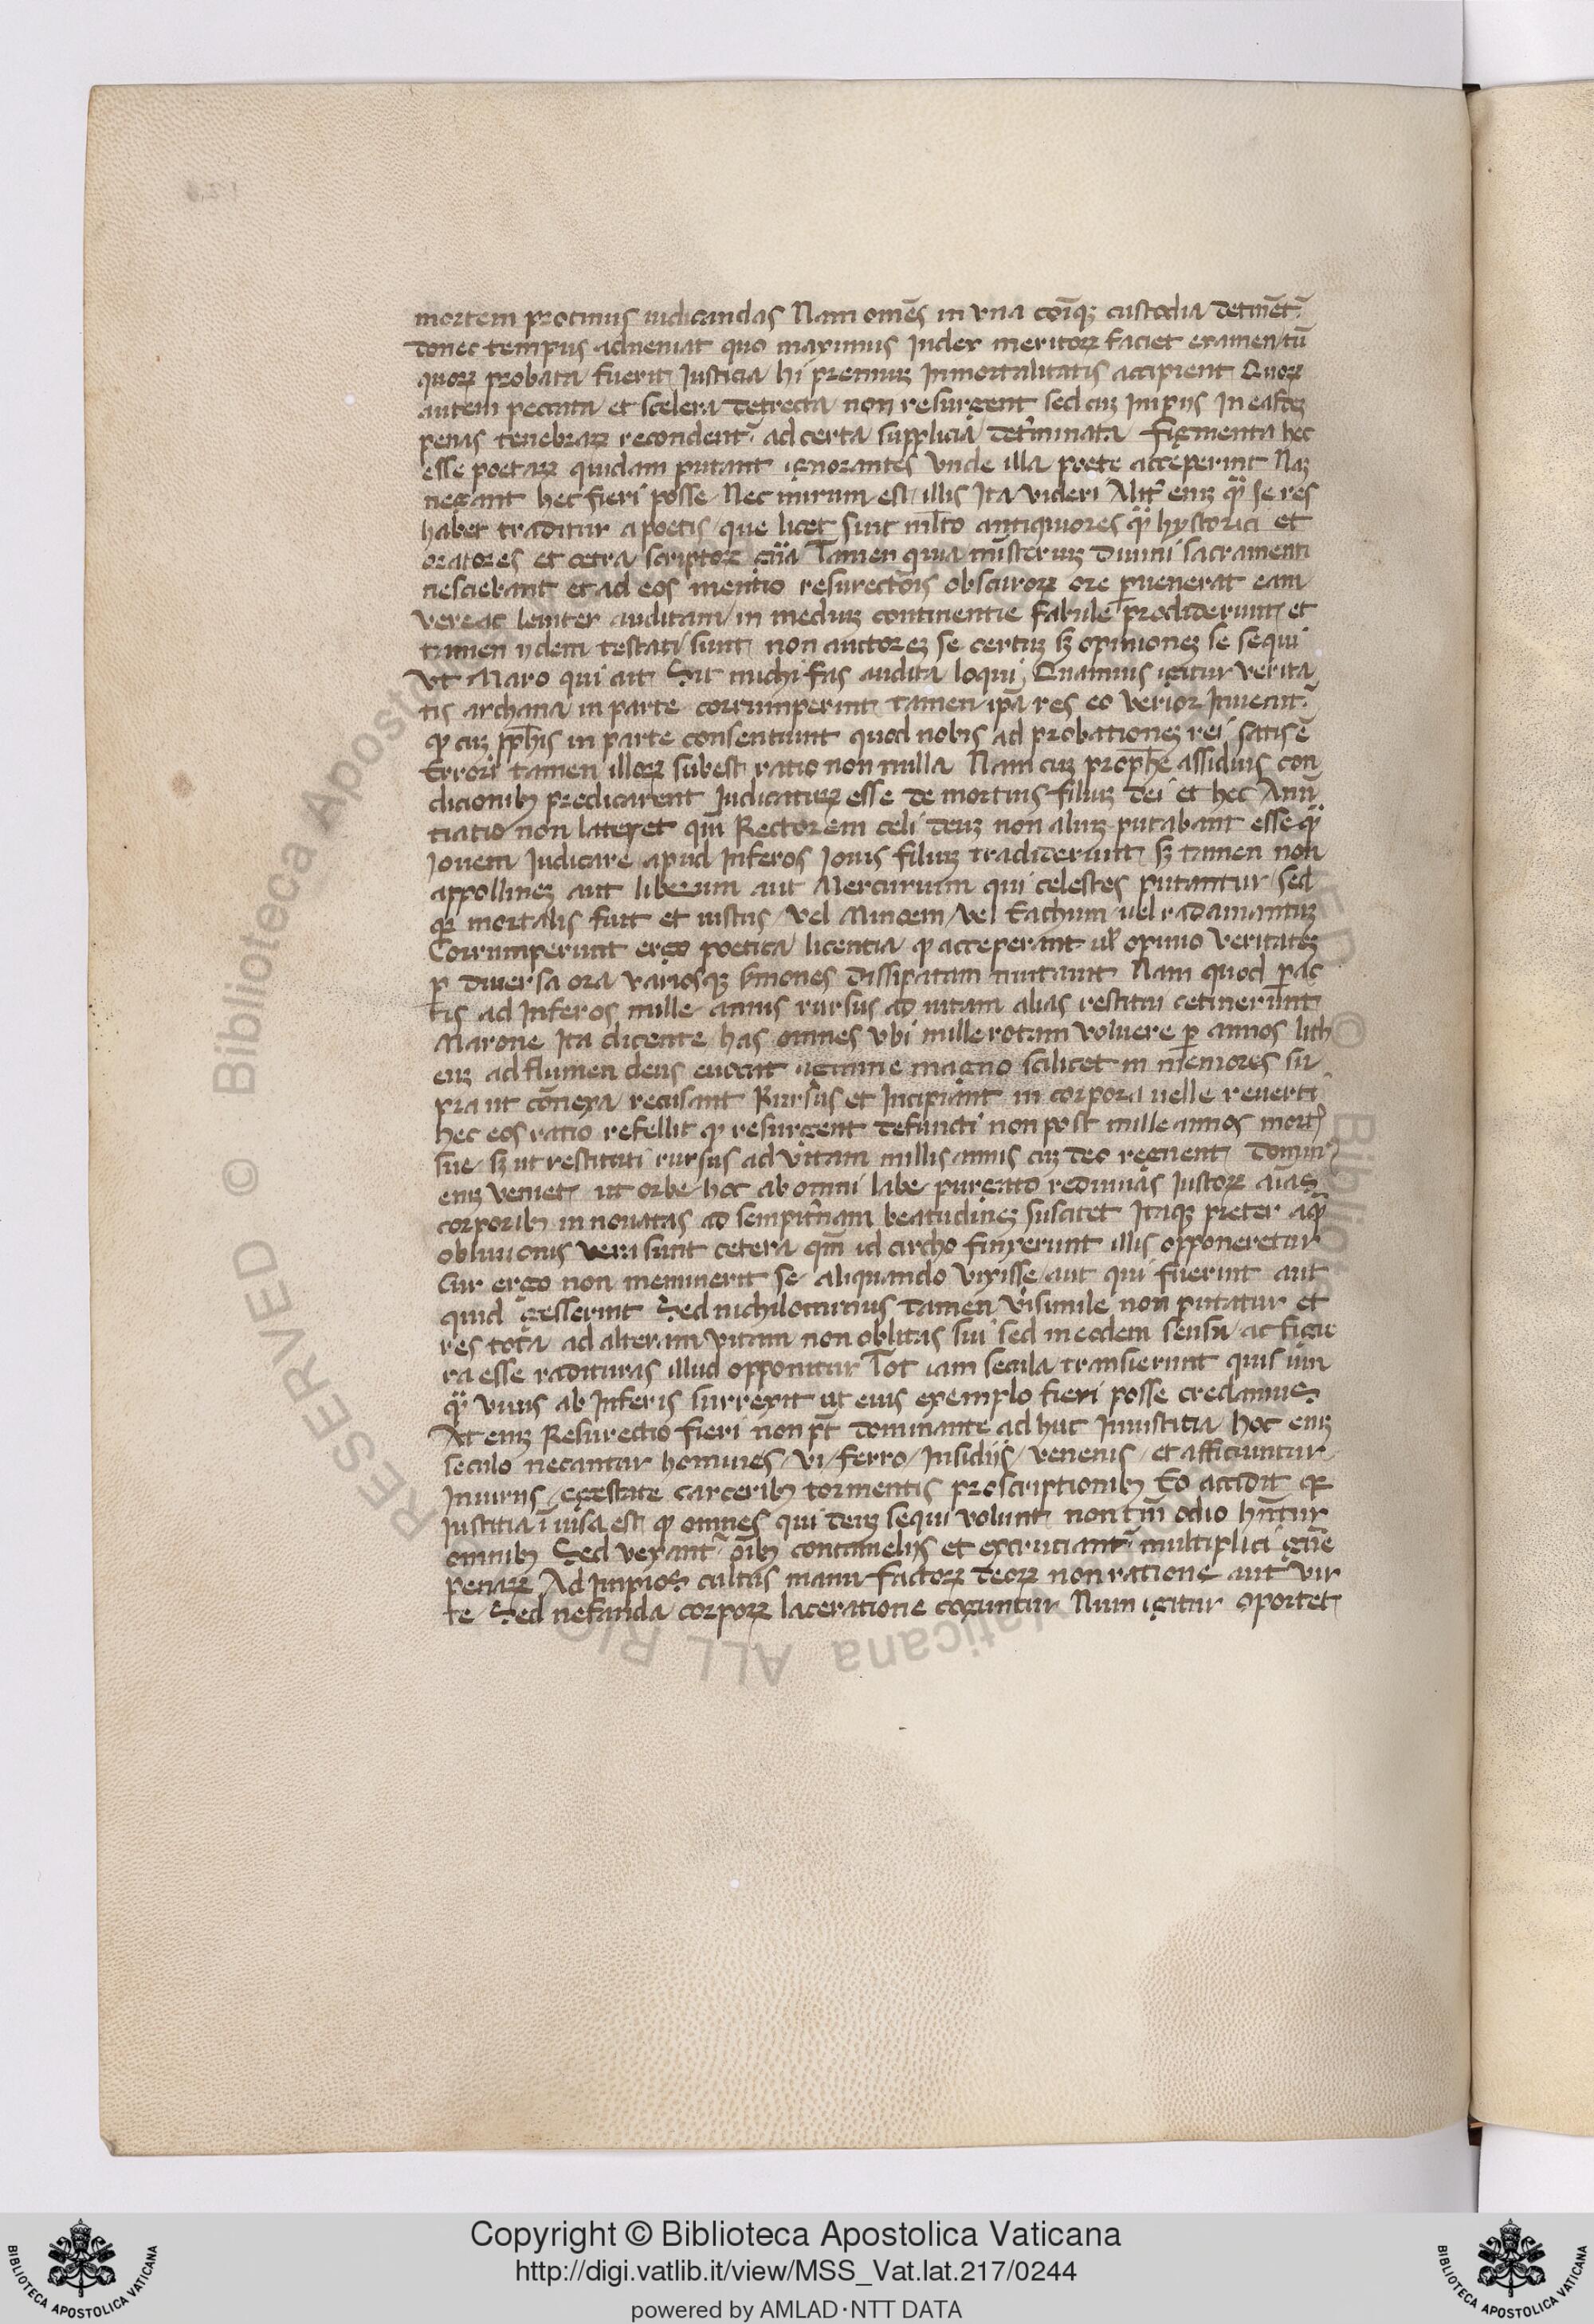 mortem protinus iudicandas Nam omēs in vna cōiqꝫ custodia detinēt᷑
donec tempus adueniat quo maximus Iudex meritoꝝ faciet examen/tū
quoꝝ probata fuerit Iusticia hi premiuꝫ Inmortalitatis accipient Quoꝝ
autem peccata et scelera detecta non resurgent sed cuꝫ Impijs In easdeꝫ
penas tenebraꝝ recondent᷑ ad certa supplicia det᷑minata Figmenta hec
esse poetaꝝ quidam putant ignorantes vnde illa poete acceperint Naꝫ
negant hec fieri posse Nec mirum est illis Ita videri Alit᷑ enꝫ qͣꝫ se res
habet traditur a poetis que licet sint ml̄to antiquiores qͣꝫ hystorici et
oratores et cetra scriptoꝝ gn̄a Tamen quia misteriuꝫ diuini sacramenti
nesciebant et ad eos mentio resurectōis obscuroꝝ ore ꝑuenerat eam
vereac leuiter auditam in mediuꝫ continentie fabule prodiderunt et
tamen ijdem testati sunt non auctoreꝫ se certuꝫ sꝫ opinioneꝫ se sequi
Vt Maro qui ait Sit michi fas audita loqui Quamuis igitur verita
tis archana in parte corrumperint tamen ip̄a res eo verior Inuenit᷑
ꝙ cuꝫ ꝓph̄is in parte consentiunt quod nobis ad probationeꝫ rei satis ē
Errori tamen illoꝝ subest ratio non nulla Nam cuꝫ proph̄e assiduis con
dicionibꝫ predicarent Iudicatuꝝ esse de mortuis filiuꝫ dei et hec Annū
tiatio non lateret qm̄ Rectorem celi deuꝫ non aliuꝫ putabant esse qͣꝫ
Iouem Iudicare apud Inferos Iouis filiuꝫ tradiderunt sꝫ tamen non
appollineꝫ aut liberum aut Mercurium qui celestes putantur sed
qꝫ mortalis fuit et iustus vel Minoem vel Eachum uel radamantuꝫ
Corrumperunt ergo poetica licentia ꝙ acceperant ul̄ opinio veritateꝫ
ꝑ diuersa ora variosqꝫ ẜmones dissipatam mutauit Nam quod ꝑac
tis ad Inferos mille annis rursus ad uitam alias restitui cetinerunt
Marone Ita dicente has omnes vbi mille rotam voluere ꝑ annos lith
euꝫ ad flumen deus euocat agmine magno scilicet in memores su
pra ut cōnexa recusant Rursus et Incipiant in corpora uelle reuerti
hec eos ratio refellit ꝙ resurgent defuncti non post mille annos mortꝭ
sue sꝫ ut restituti rursus ad vitam millis annis cuꝫ deo regnent domin᷒
enꝫ veniet ut orbe hoc ab omni labe purgato rediuiuas Iustoꝝ aīas
corporibꝫ in nouatas ad sempit᷑nam beatudineꝫ suscitet Itaqꝫ preter aqͣꝫ
obliuionis veri sunt cetera qm̄ id circho finxerunt illis opponeretur
Cur ergo non meminerit se aliquando vixisse aut qui fuerint aut
quid gesserint Sed nichilominus tamen v̓isimile non putatur et
res tota ad alteram vitam non oblitas sui sed in eodem sensu ac figu
ra esse radituras illud opponitur Tot iam secula transierunt quis iim
qͣꝫ vnus ab Inferis surrexit ut eius exemplo fieri posse credamus
At enꝫ Resurectio fieri non pt̄ dominante ad huc Iniustitia hoc enꝫ
seculo necantur homines vi ferro Insidijs venenis et afficiuntur
Iniurijs egestate carceribꝫ tormentis proscriptionibꝫ Eo accidit qꝫ
Iustitia ī uisa est ꝙ omnes qui deuꝫ sequi volunt non tm̄ odio hn̄tur
omnibꝫ Sed vexant᷑ oībꝫ contumelijs et excruciant᷑ multiplici gn̄e
penaꝝ Ad Impios cultus manu factoꝝ deoꝝ non ratione aut vir
te Sed nefanda corpoꝝ laceratione coguntur Num igitur oportet
Copyright © Biblioteca Apostolica Vaticana
http://digi.vatlib.it/view/MSS_Vat.lat.217/0244
powered by AMLAD·NTT DATA